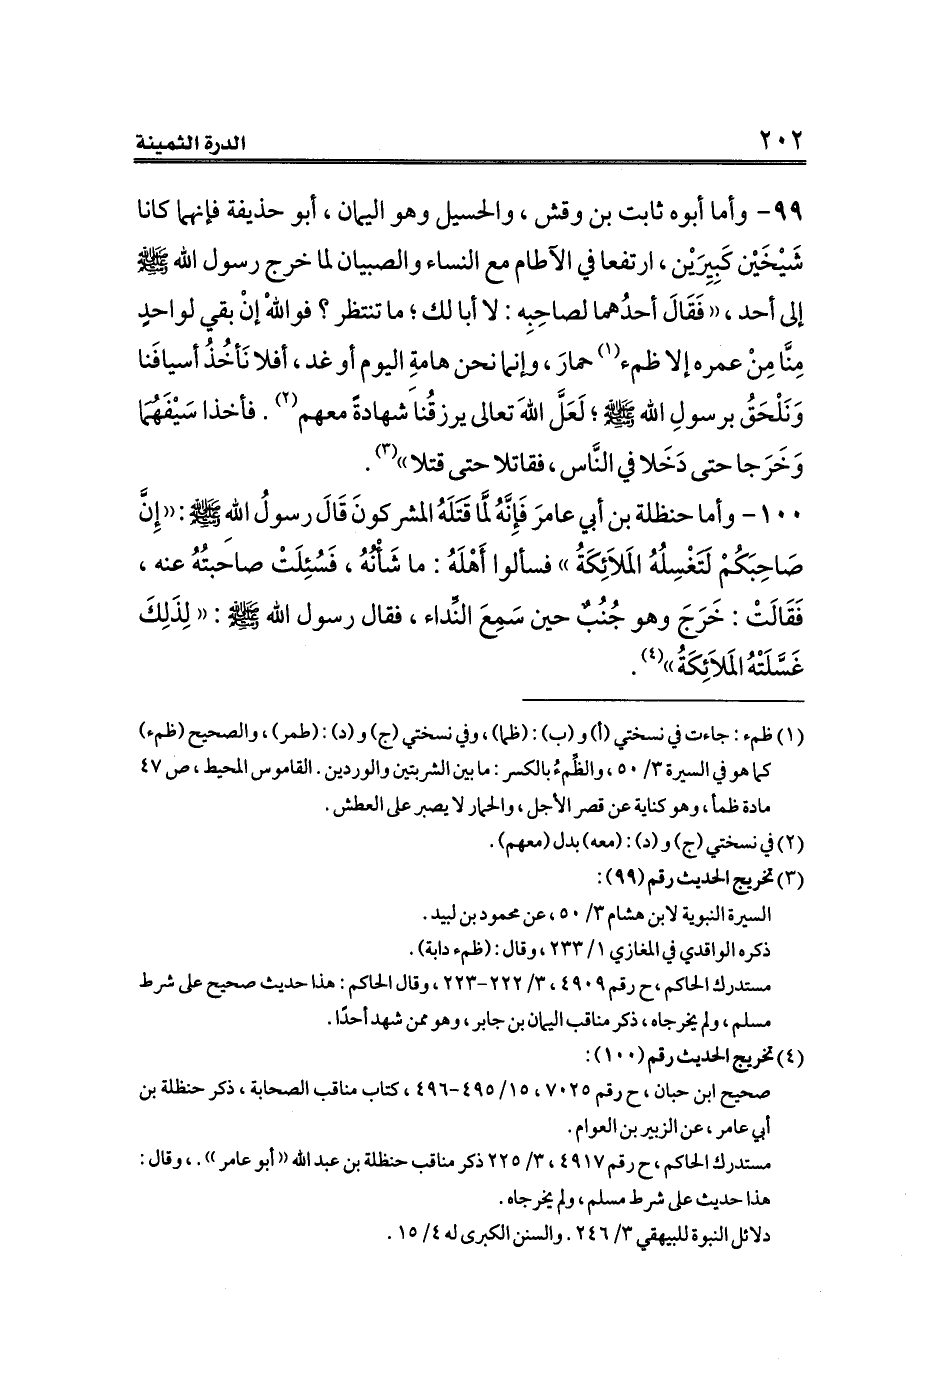 ٢٠٢ الدرة الثمينة
٩٩- وأما أبوه ثابت بن وقش ، والحسيل وهو اليمان ، أبو حذيفة فإنهما كانا
شَيْخَيْن كَبِيرَيْن ، ارتفعا في الآطام مع النساء والصبيان لما خرج رسول الله ﷺ
إلى أحد ، « فَقَالَ أحدُهما لصاحِبِه : لا أبا لك ؛ ما تنتظر ؟ فواللهْ إنْ بقي لواحدٍ
مِنَّا مِنْ عمره إلا ظمء(١) حمارَ ، وإنما نحن هامةِ اليوم أو غد ، أفلا نَأْخُذُ أسيافَنا
وَنَلْحَقُ برسولِ الله ﷺ ؛ لَعَلَّ اللهَ تعالى يرزقُنا شهادةً معهم(٢) . فأخذا سَيْفَهُمَا
وَخَرَجا حتى دَخَلا في النَّاس ، فقاتلا حتى قتلا »(٣) .
١٠٠- وأما حنظلة بن أبي عامرَ فَإِنَّهُ لمَّا قتَلَهُ المشركونَ قَالَ رسولُ اللهِ ﷺ : « إِنَّ
صَاحِبَكُمْ لَتَغْسِلُهُ المَلاَئِكَةُ » فسألوا أَهْلَهُ : ما شَأْنُهُ ، فَسُئِلَتْ صاحبتُهُ عنه ،
فَقَالَتْ : خَرَجَ وهو جُنُبٌ حين سَمِعَ النِّداء ، فقال رسول الله ﷺ : « لِذَلِكَ
غَسَّلَتْهُ المَلاَئِكَةُ »(٤) .
(١) ظمء : جاءت في نسختي (أ) و (ب) : (ظما) ، وفي نسختي (ج) و (د) : (طمر) ، والصحيح (ظمء)
كما هو في السيرة ٣/ ٥٠ ، والظِّمءُ بالكسر : ما بين الشربتين والوردين . القاموس المحيط ، ص ٤٧
مادة ظمأ ، وهو كناية عن قصر الأجل ، والحمار لا يصبر على العطش .
(٢) في نسختي (ج) و (د) : (معه) بدل (معهم) .
(٣) تخريج الحديث رقم (٩٩) :
السيرة النبوية لابن هشام ٣/ ٥٠ ، عن محمود بن لبيد .
ذكره الواقدي في المغازي ١/ ٢٣٣ ، وقال : (ظمء دابة) .
مستدرك الحاكم ، ح رقم ٤٩٠٩ ، ٣/ ٢٢٢-٢٢٣ ، وقال الحاكم : هذا حديث صحيح على شرط
مسلم ، ولم يخرجاه ، ذكر مناقب اليمان بن جابر ، وهو ممن شهد أحدًا .
(٤) تخريج الحديث رقم (١٠٠) :
صحيح ابن حبان ، ح رقم ٧٠٢٥ ، ١٥/ ٤٩٥-٤٩٦ ، كتاب مناقب الصحابة ، ذكر حنظلة بن
أبي عامر ، عن الزبير بن العوام .
مستدرك الحاكم ، ح رقم ٤٩١٧ ، ٣/ ٢٢٥ ذكر مناقب حنظلة بن عبد الله « أبو عامر » . ، وقال :
هذا حديث على شرط مسلم ، ولم يخرجاه .
دلائل النبوة للبيهقي ٣/ ٢٤٦ . والسنن الكبرى له ٤/ ١٥ .